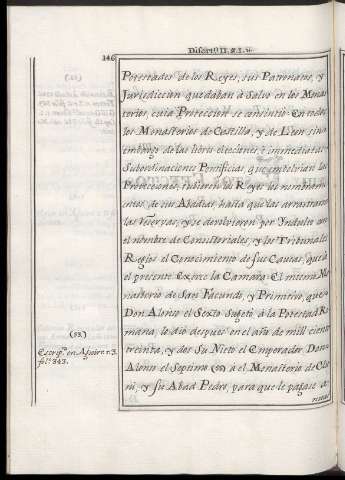 Disert.º II. §. I. n.
146
Potestades de los Reyes, sus Patronatos, y
Jurisdiccion quedaban à Salvo en los Monas
terios, cuia Proteccion se consintió. En todos
los Monasterios de Castilla, y de Leon, sin
embargo de las libres elecciones, è inmediatas
Subordinaciones Pontificias, que embolvian las
Protecciones, tubieron los Reyes los nombram.
entos, de sus Abadias, hasta que las arrastraron
las reservas, y se devolvieron por Indulto con
el nombre de Consistoriales, y los Tribunales
Regios el Conocimiento de sus Causas, que à
el presente Exerce la Camara. El mismo Mo
nasterio de San Facundo, y Primitivo, que
Don Alonso el Sexto Sugetó à la Potestad Ro
mana, lo dió despues en el año de mil ciento
treinta, y dos Su Nieto el Emperador Don
Alonso el Septimo (88) à el Monasterio de Clu
ni, y su Abad Pedro, para que le pagase a
nual
(88)
Escrip.ª en Aguirre n.3.
fol. 343.